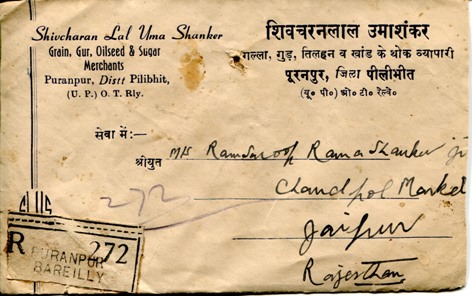 Shivcharan Lal Uma Shanker
Grain, Gur, Oilseed & Sugar
Merchants
Puranpur, Distt Pilibhit,
(U. P.) O. T. Rly.
शिवचरनलाल उमाशंकर
गल्ला, गुड़, तिलहन व खांड के थोक व्यापारी
पूरनपुर, जिला पीलीभीत
(यू० पी०) ओ० टी० रेल्वे०
सेवा में :—
श्रीयुत M/s Ramsaroop Rama Shanker
Chandpol Market
Jaipur
Rajesthan
272
R 272
PURANPUR
BAREILLY